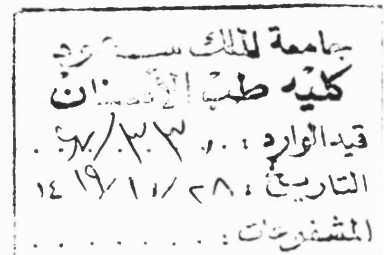 جامعة الملك سعود
كلية طب الأسنان
قيد الوارد :
التاريخ : ٢٨ / ١٠ / ١٤١٩
المشفوعات : . . . . . . . .